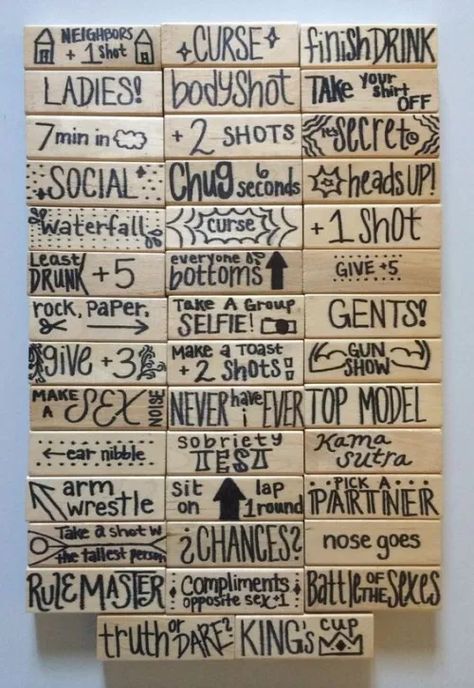 NEIGHBORS
+ 1 shot
CURSE
finish DRINK
LADIES!
bodyshot
TAKE YOUR
shirt
OFF
7 min in
+ 2 SHOTS
it's
SECRET
SOCIAL
Chug 6
seconds
heads UP!
waterfall
curse
+ 1 Shot
LEAST
DRUNK +5
everyone
bottoms
GIVE +5
rock, paper,
Take A Group
SELFIE!
GENTS!
give +3
Make a Toast
+ 2 Shots!
GUN
SHOW
MAKE
A SEX NOISE
NEVER have i EVER
TOP MODEL
ear nibble
sobriety
TEST
Kama
Sutra
arm
wrestle
sit lap
on 1 round
PICK A
PARTNER
Take a shot w
the tallest person
¿CHANCES?
nose goes
RULE MASTER
Compliments
opposite sex +1
Battle OF THE Sexes
truth OR DARE?
KING's cup